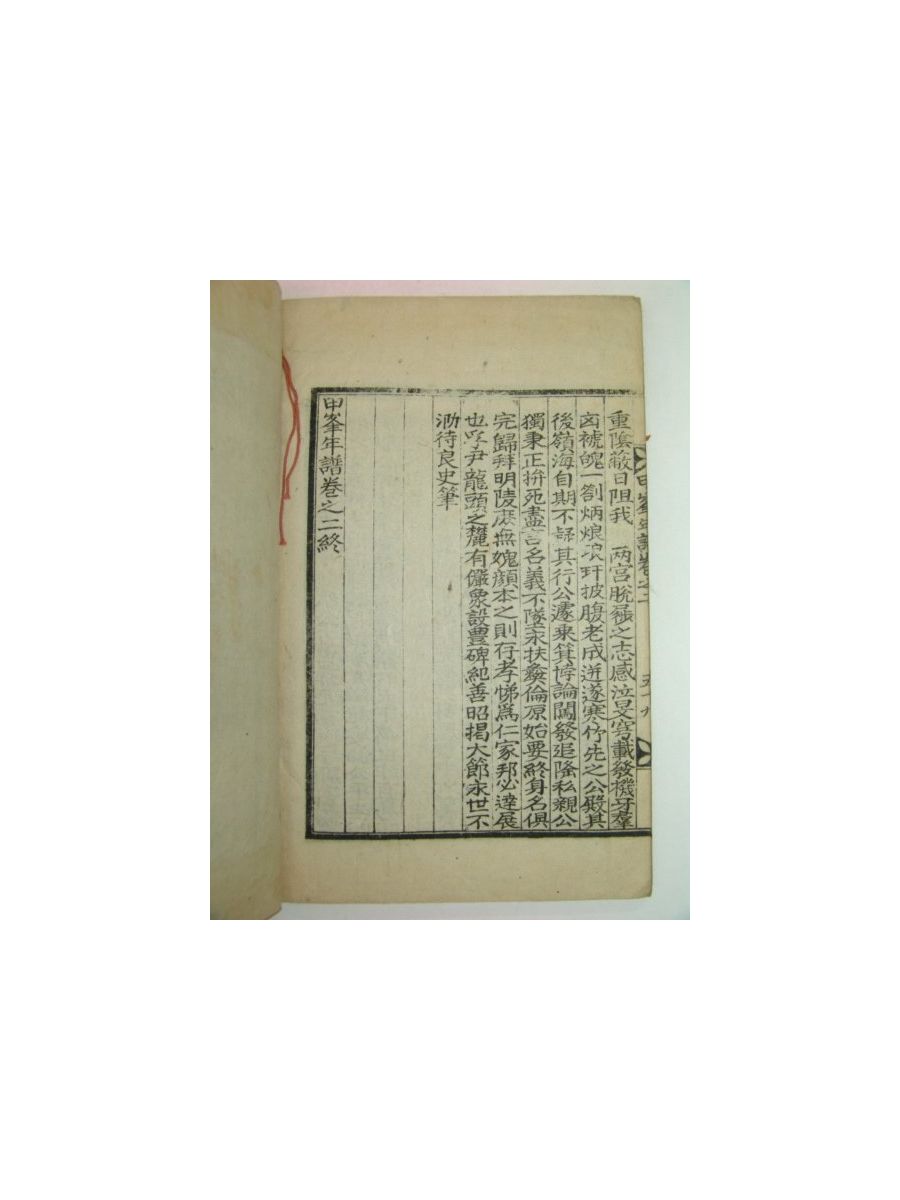 重陰蔽日阻我　兩宮脫屣之志感泣旻穹載發機牙羣
凶褫魄一劄炳烺琅玕披腹老成迸逐寒竹先之公殿其
後嶺海自期不 其行公遽乘箕悖論闖發追隆私親公
獨秉正拚死盡言名義不墜永扶彛倫原始要終身名俱
完歸拜明陵庶無媿顔本之則存孝悌爲仁家邦必達展
也 尹龍頭之麓有儼象設豊碑紀善昭揭大節永世不
泐待良史筆
甲峯年譜卷之二終
甲峯年譜卷之二　五十九